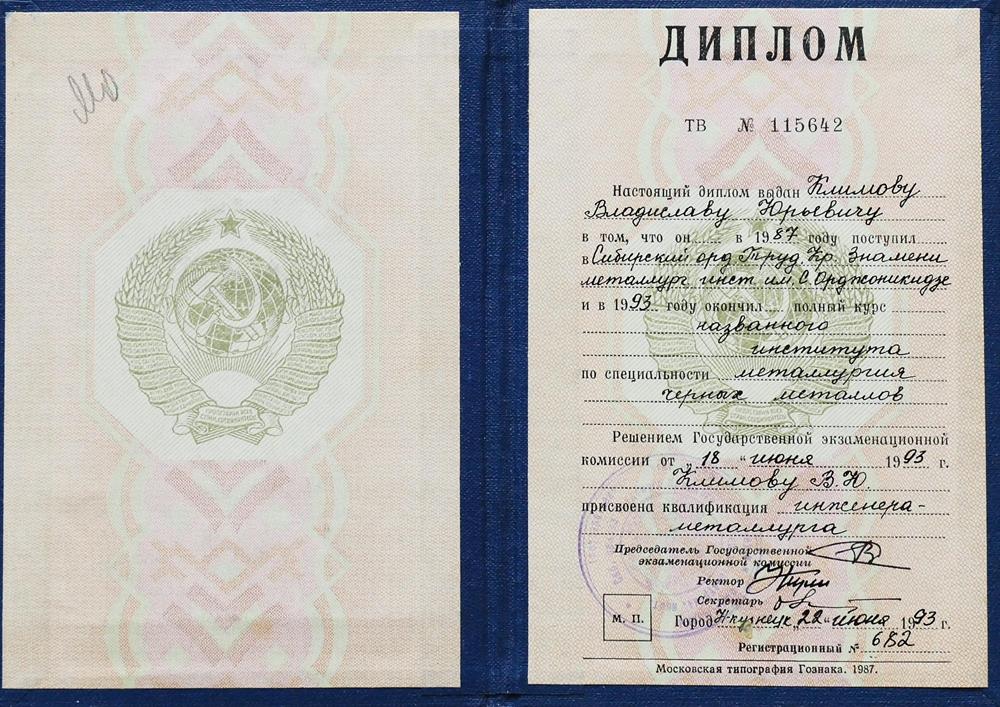 ДИПЛОМ
ТВ № 115642
Настоящий диплом выдан Климову
Владиславу Юрьевичу
в том, что он...... в 1987 году поступил......
в Сибирский орд. Труд. Кр. Знамени
металлург. инст. им. С. Орджоникидзе
и в 1993 году окончил.... полный курс
названного
института
по специальности металлургия
черных металлов
Решением Государственной экзаменационной
комиссии от „18 “ июня 1993 г.
Климову В.Ю.
присвоена квалификация инженера-
металлурга
Председатель Государственной
экзаменационной комиссии
Ректор
Секретарь
М. П.
Город Н-кузнецк „22“ июня 1993 г.
Регистрационный № 682
Московская типография Гознака. 1987.